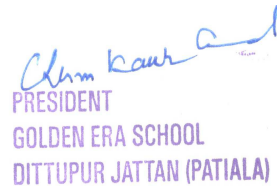 Kaur
PRESIDENT
GOLDEN ERA SCHOOL
DITTUPUR JATTAN (PATIALA)